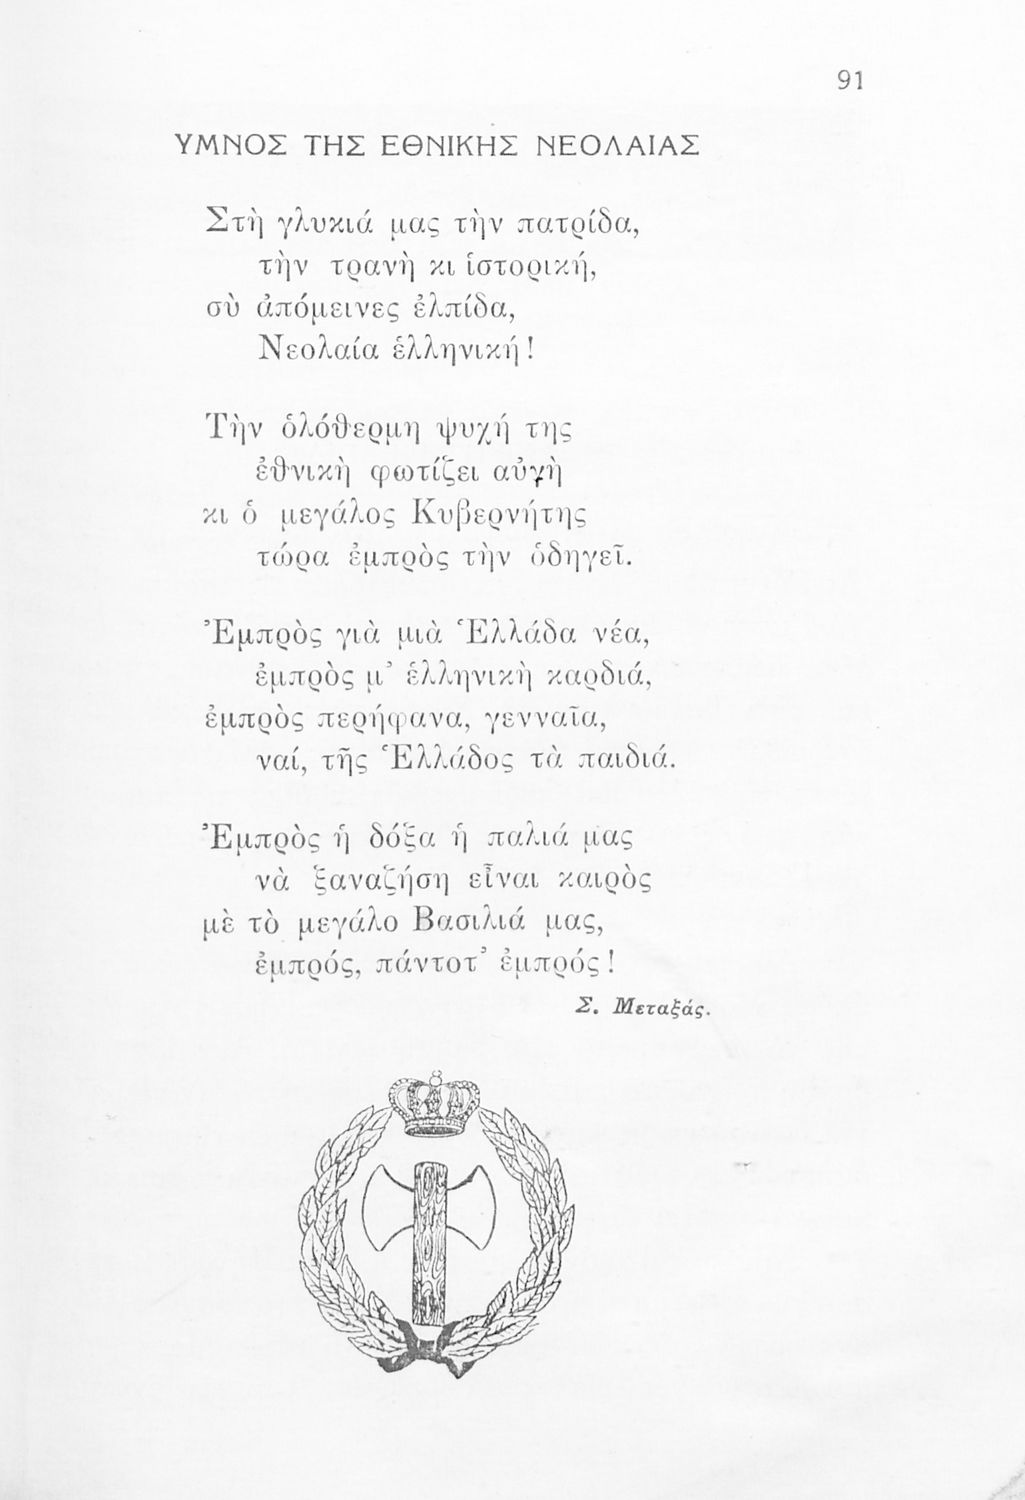 91
ΥΜΝΟΣ ΤΗΣ ΕΘΝΙΚΗΣ ΝΕΟΛΑΙΑΣ
Στὴ γλυκιά μας τὴν πατρίδα,
τὴν τρανὴ κι ἱστορική,
σὺ ἀπόμεινες ἐλπίδα,
Νεολαία ἑλληνική!
Τὴν ὁλόθερμη ψυχή της
ἐθνικὴ φωτίζει αὐγὴ
κι ὁ μεγάλος Κυβερνήτης
τώρα ἐμπρὸς τὴν ὁδηγεῖ.
Ἐμπρὸς γιὰ μιὰ Ἑλλάδα νέα,
ἐμπρὸς μ᾿ ἑλληνικὴ καρδιά,
ἐμπρὸς περήφανα, γενναῖα,
ναί, τῆς Ἑλλάδος τὰ παιδιά.
Ἐμπρὸς ἡ δόξα ἡ παλιά μας
νὰ ξαναζήση εἶναι καιρὸς
μὲ τὸ μεγάλο Βασιλιά μας,
ἐμπρός, πάντοτ᾿ ἐμπρός!
Σ. Μεταξάς.